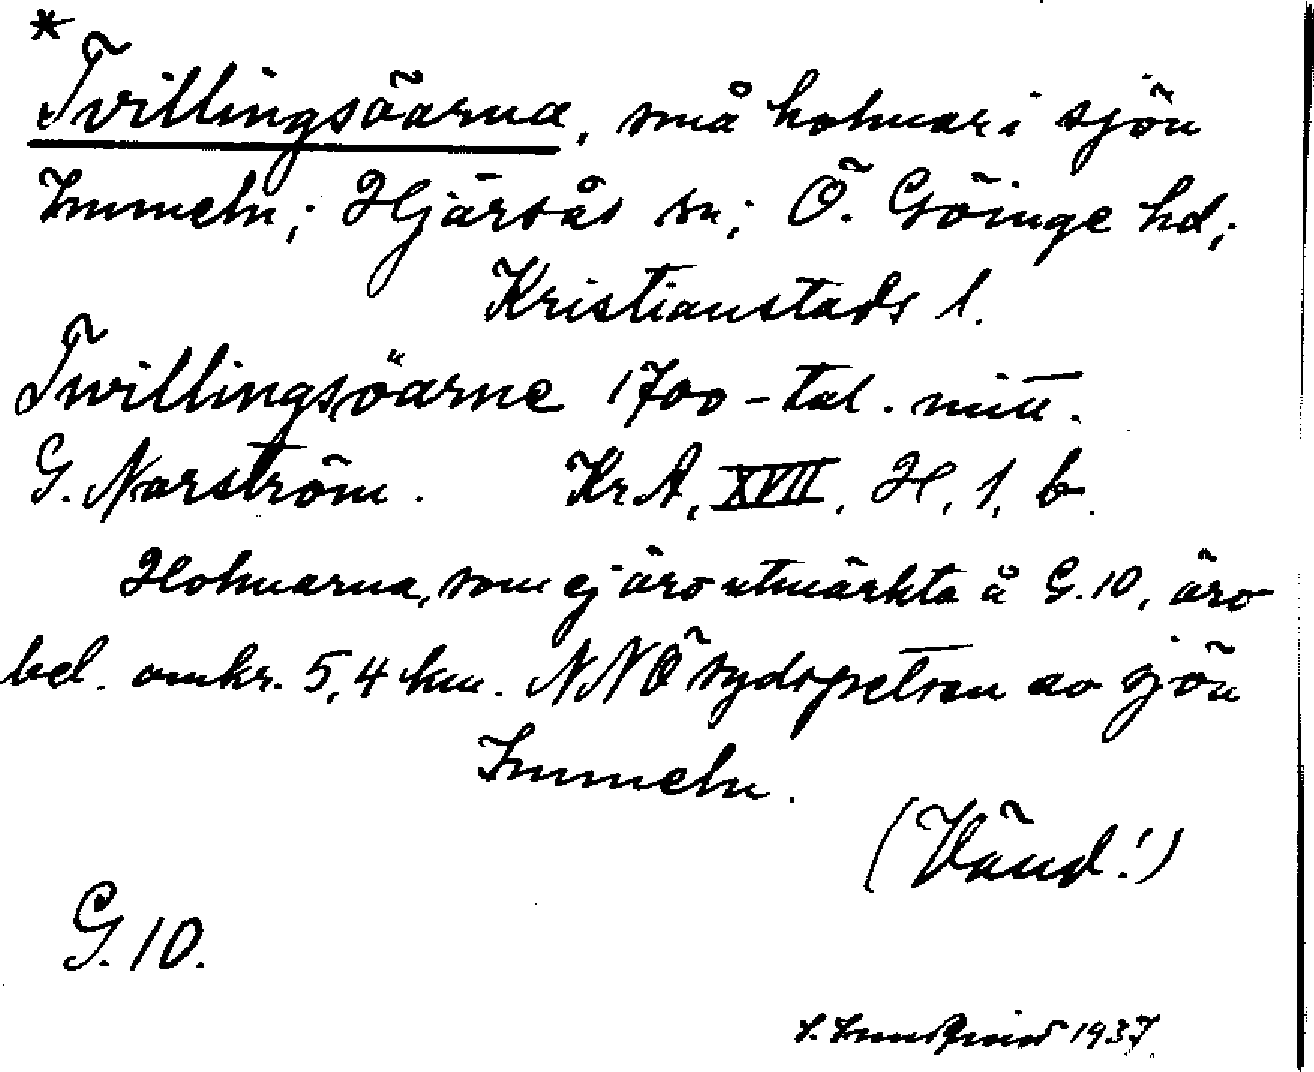 *
Tvillingsöarna, små holmar i sjön
Immeln; Hjärsås sn; Ö. Göinge hd;
Kristianstads l.
Twillingsöarne 1700-tal. mitt.
G. Norström. KrA, XVII, H, 1, b.
Holmarna, som ej äro utmärkta å G.10, äro
bel. omkr. 5,4 km. NNÖ sydspetsen av sjön
Immeln.
(Vänd!)
G.10.
1937